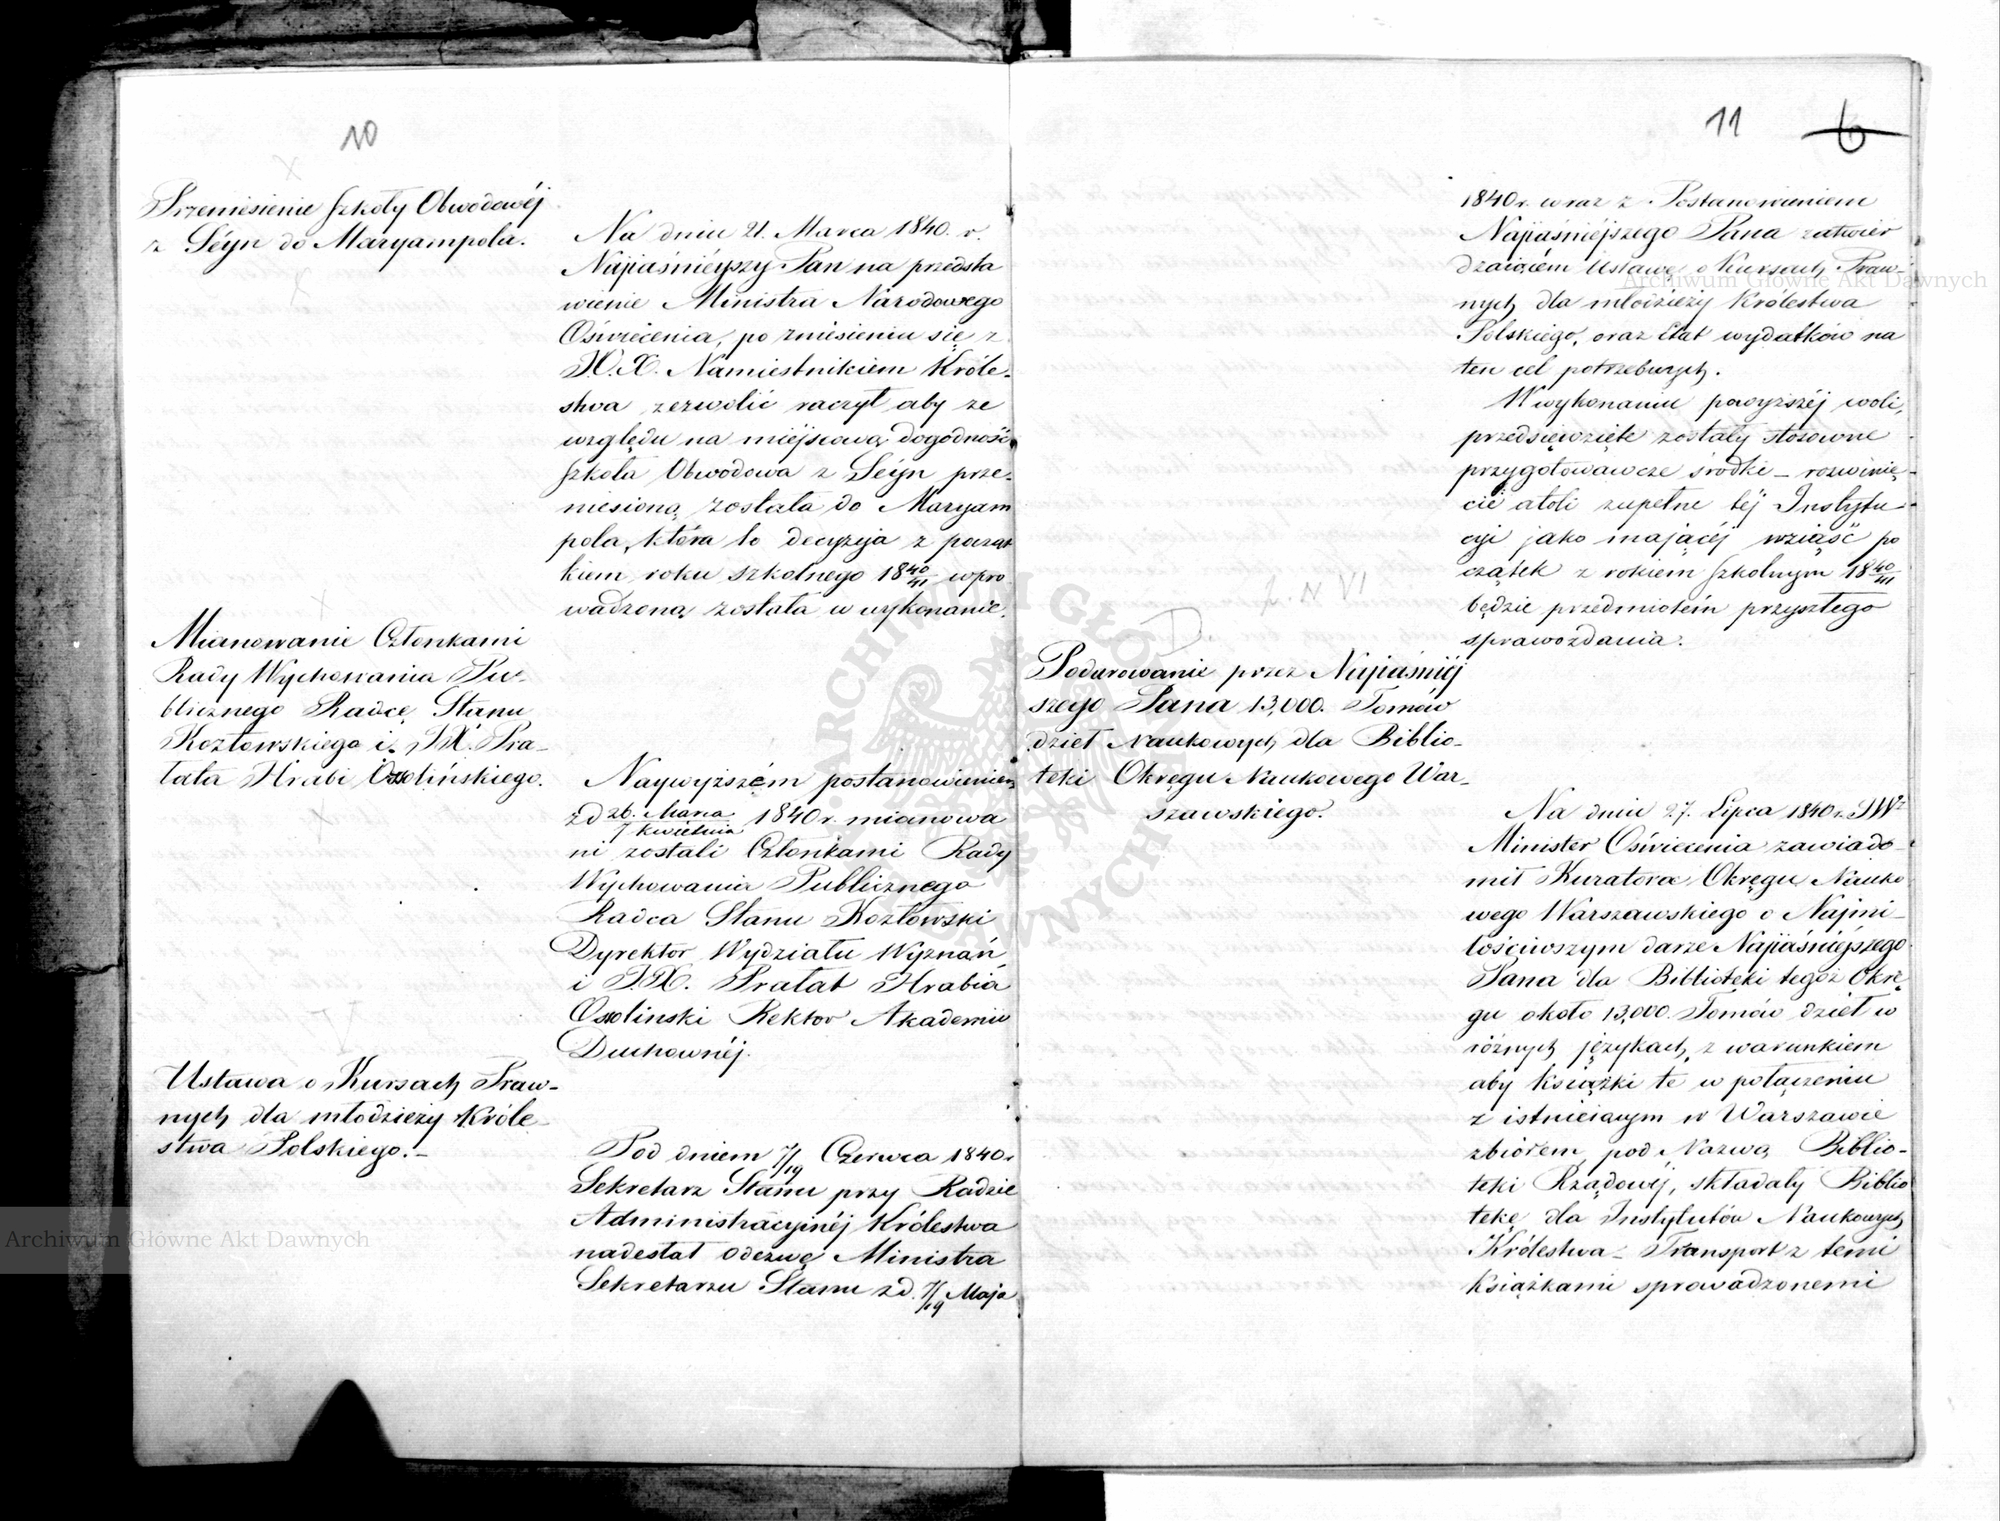 10
Przeniesienie Szkoły Obwodowéj
z Séyn do Maryampola.
Na dniu 21. Marca 1840. r.
Najiaśniéyszy Pan na przedsta
wienie Ministra Narodowego
Oświecenia, po zniesieniu się z
J.O.X. Namiestnikiem Króle-
stwa zezwolić raczył aby ze
względu na miéjscową dogodność
Szkoła Obwodowa z Séyn prze-
niesioną została do Maryam
pola, która to decyzyja z począt
kiem roku szkolnego 18 40/41 wpro
wadzoną została w wykonanie.
Mianowanie Członkami
Rady Wychowania Pu-
blicznego Radcę Stanu
Kozłowskiego i JX. Pra-
łata Hrabi Ossolińskiego.
Naywyższém postanowieniem
zd 26. Marca/7 Kwietnia 1840 r. mianowa
ni zostali Członkami Rady
Wychowania Publicznego
Radca Stanu Kozłowski
Dyrektor Wydziału Wyznań
i JX. Prałat Hrabia
Ossolinski Rektor Akademii
Duchownéj.
Ustawa o Kursach Praw-
nych dla młodzieży Króle-
stwa Polskiego.-
Pod dniem 7/19 Czerwca 1840 r
Sekretarz Stanu przy Radzie
Administracyjnéj Królestwa
nadesłał odezwę Ministra
Sekretarzu Stanu zd. 7/19 Maja
11 6
1840 r. wraz z Postanowieniem
Najiaśniéjszego Pana zatwier
dzaiącém Ustawę o Kursach Praw-
nych dla młodzieży Królestwa
Polskiego, oraz Etat wydatków na
ten cel potrzebnych.
W wykonaniu powyższéj woli,
przedsięwzięte zostały stosowne
przygotowawcze środki – rozwinię-
cie atoli zupełne téj Instytu-
cyi jako mającéj wziąść po
czątek z rokiem Szkolnym 18 40/41
będzie przedmiotem przyszłego
sprawozdania.
Z. N VI
Podarowanie przez Najiaśniéj
szego Pana 13,000. Tomów
dzieł Naukowych dla Biblio-
teki Okręgu Naukowego War-
szawskiego.
Na dniu 27. Lipca 1840 r. JWz
Minister Oświecenia zawiado-
mił Kuratora Okręgu Nauko
wego Warszawskiego o Najmi-
łościwszym darze Najiaśniéjszego
Pana dla Biblioteki tegoż Okrę
gu około 13,000. Tomów dzieł w
różnych językach, z warunkiem
aby książki te w połączeniu
z istnieiącym w Warszawie
zbiorem, pod Nazwą Biblio-
teki Rządowéj, składały Biblio
tekę dla Instytutów Naukowych
Królestwa – Transport z temi
książkami sprowadzonemi
Archiwum Główne Akt Dawnych
Archiwum Główne Akt Dawnych